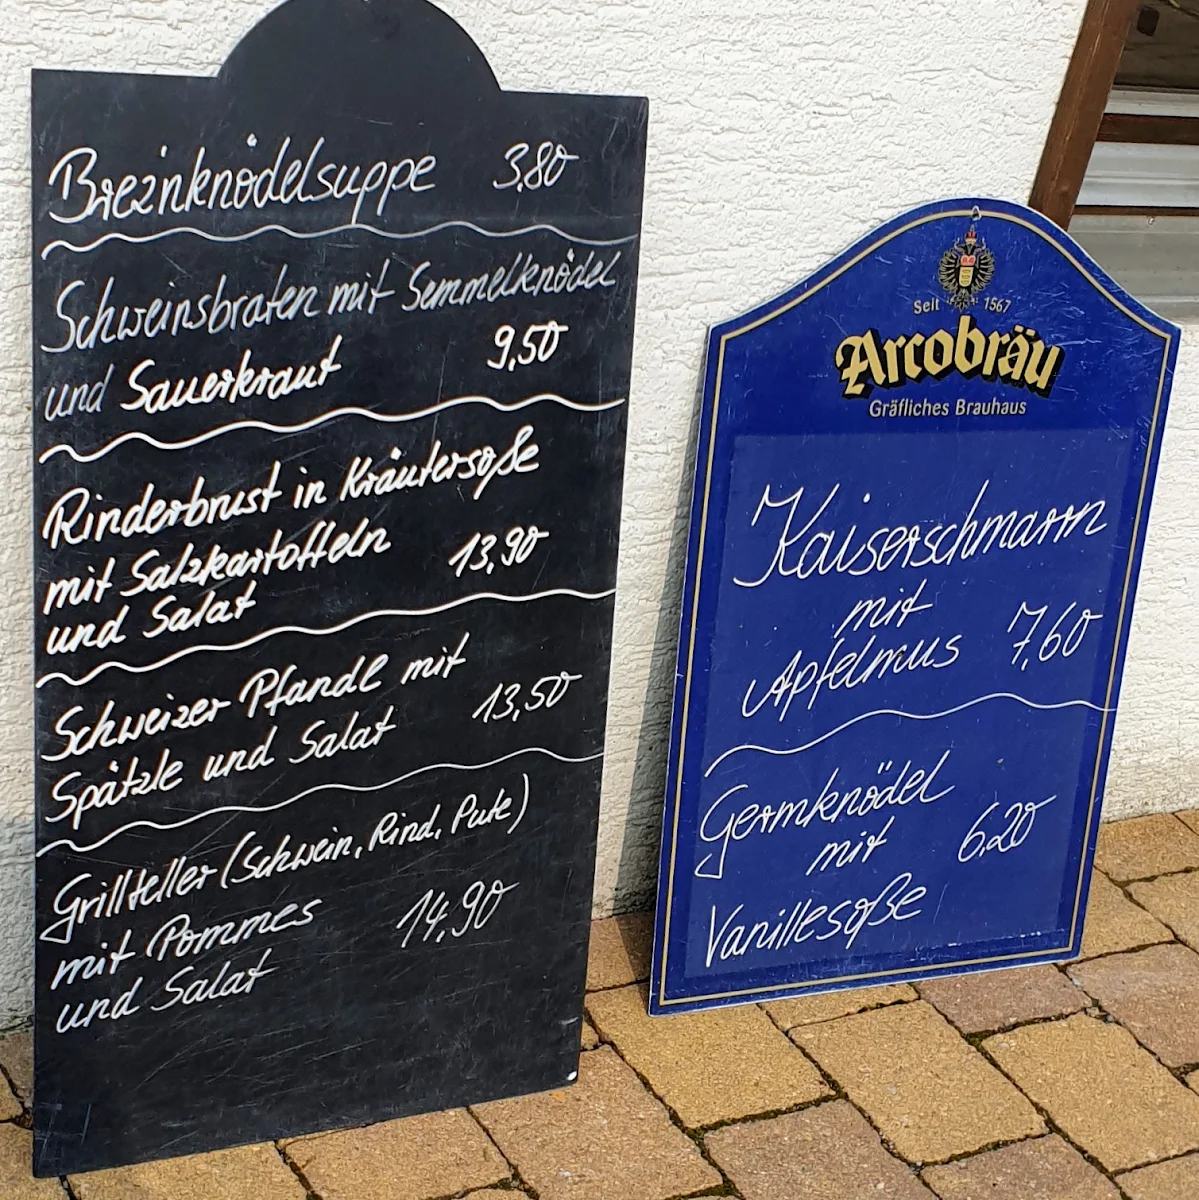 Breznknödelsuppe 3,80
Schweinsbraten mit Semmelknödel
und Sauerkraut 9,50
Rinderbrust in Kräutersoße
mit Salzkartoffeln 13,90
und Salat
Schweizer Pfandl mit
Spätzle und Salat 13,50
Grillteller (Schwein, Rind, Pute)
mit Pommes 14,90
und Salat
Seit 1567
Arcobräu
Gräfliches Brauhaus
Kaiserschmarrn
mit
Apfelmus 7,60
Germknödel
mit 6,20
Vanillesoße